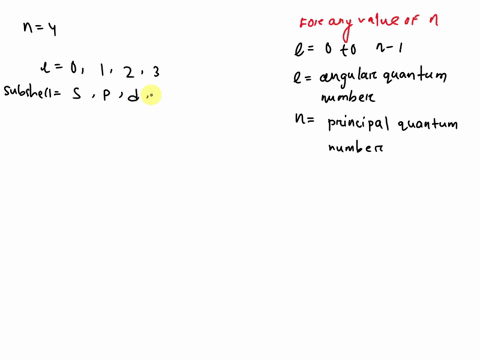 n=4
l = 0, 1, 2, 3
subshell = S, P, d,
For any value of n
l = 0 to n-1
l = angular quantum
number
n = principal quantum
number